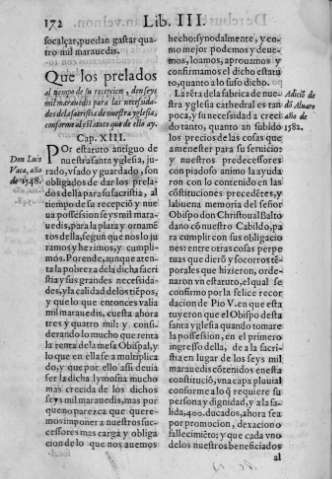 172
Lib. III.
focalçar, puedan gastar quatro
mil marauedis.
Que los prelados
al tiempo de su recepcion, den seys
mil marauedis para las necesidades
della sacristia de nuestra yglesia,
conforme al estatuto que de ello ay.
Cap. XIII.
Don Luis
Vaca, año
de 1548.
POr estatuto antiguo de
nuestra santa yglesia, jurado,
vsado y guardado, son
obligados de dar los prelados
della para su sacristia, al
tiempo de su recepciõ y nueua
possession seys mil marauedis,
para la plata y ornamẽtos
della, segun que nos lo juramos
y hezimos, y cumplimos.
Porende, aunque atenta
la pobreza de la dicha sacristia
y sus grandes necesidades,
y la calidad delos tiẽpos,
y que lo que entonces valia
mil marauedis, cuesta ahora
tres y quatro mil: y considerando
lo mucho que renta
la renta de la mesa Obispal, y
lo que en ella se a multiplicado,
y que por ello assi deuia
ser la dicha lymosna mucho
mas crecida de los dichos
seys mil marauedis, mas por
que no parezca que queremos
imponer a nuestros successores
mas carga y obligacion
de lo que nos auemos
hecho: synodalmente, y como
mejor podemos y deuemos,
loamos, aprouamos y
confirmamos el dicho estatuto,
quanto a lo suso dicho.
Adiciõ de
dõ Aluaro
año de
1582.
La rẽta de la fabrica de nuestra
yglesia cathedral es tan
poca, y su necessidad a crecido
tanto, quanto an subido
los precios de las cosas que
amenester para su seruicio
y nuestros predecessores
con piadoso animo la ayudaron
con lo contenido en las
cõstituciones precedẽtes, y
la buena memoria del señor
Obispo don Christoual Baltodano
cõ nuestro Cabildo, para
cumplir con sus obligaciones
entre otras cosas perpetuas
que dierõ y socorros tẽporales
que hizieron, ordenaron
vn estatuto, el qual se
confirmo por la felice recordacion
de Pio V. en que estatuyeron
que el Obispo desta
santa yglesia quando tomare
la possession, en el primero
ingresso della, de a la sacristia
en lugar de los seys mil
marauedis cõtenidos en esta
constituciõ, vna capa pluuial
conforme a lo q̃ requiere su
persona y dignidad, y a la salida,
400. ducados, ahora sea
por promocion, dexacion o
fallecimiẽto: y que cada vno
de los nuestros beneficiados
al